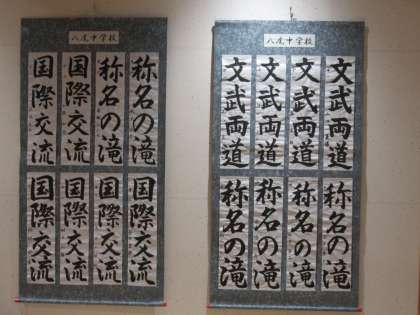 八尾中学校
称名の滝
称名の滝
国際交流
国際交流
国際交流
国際交流
国際交流
国際交流
八尾中学校
文武両道
文武両道
文武両道
文武両道
称名の滝
称名の滝
称名の滝
称名の滝